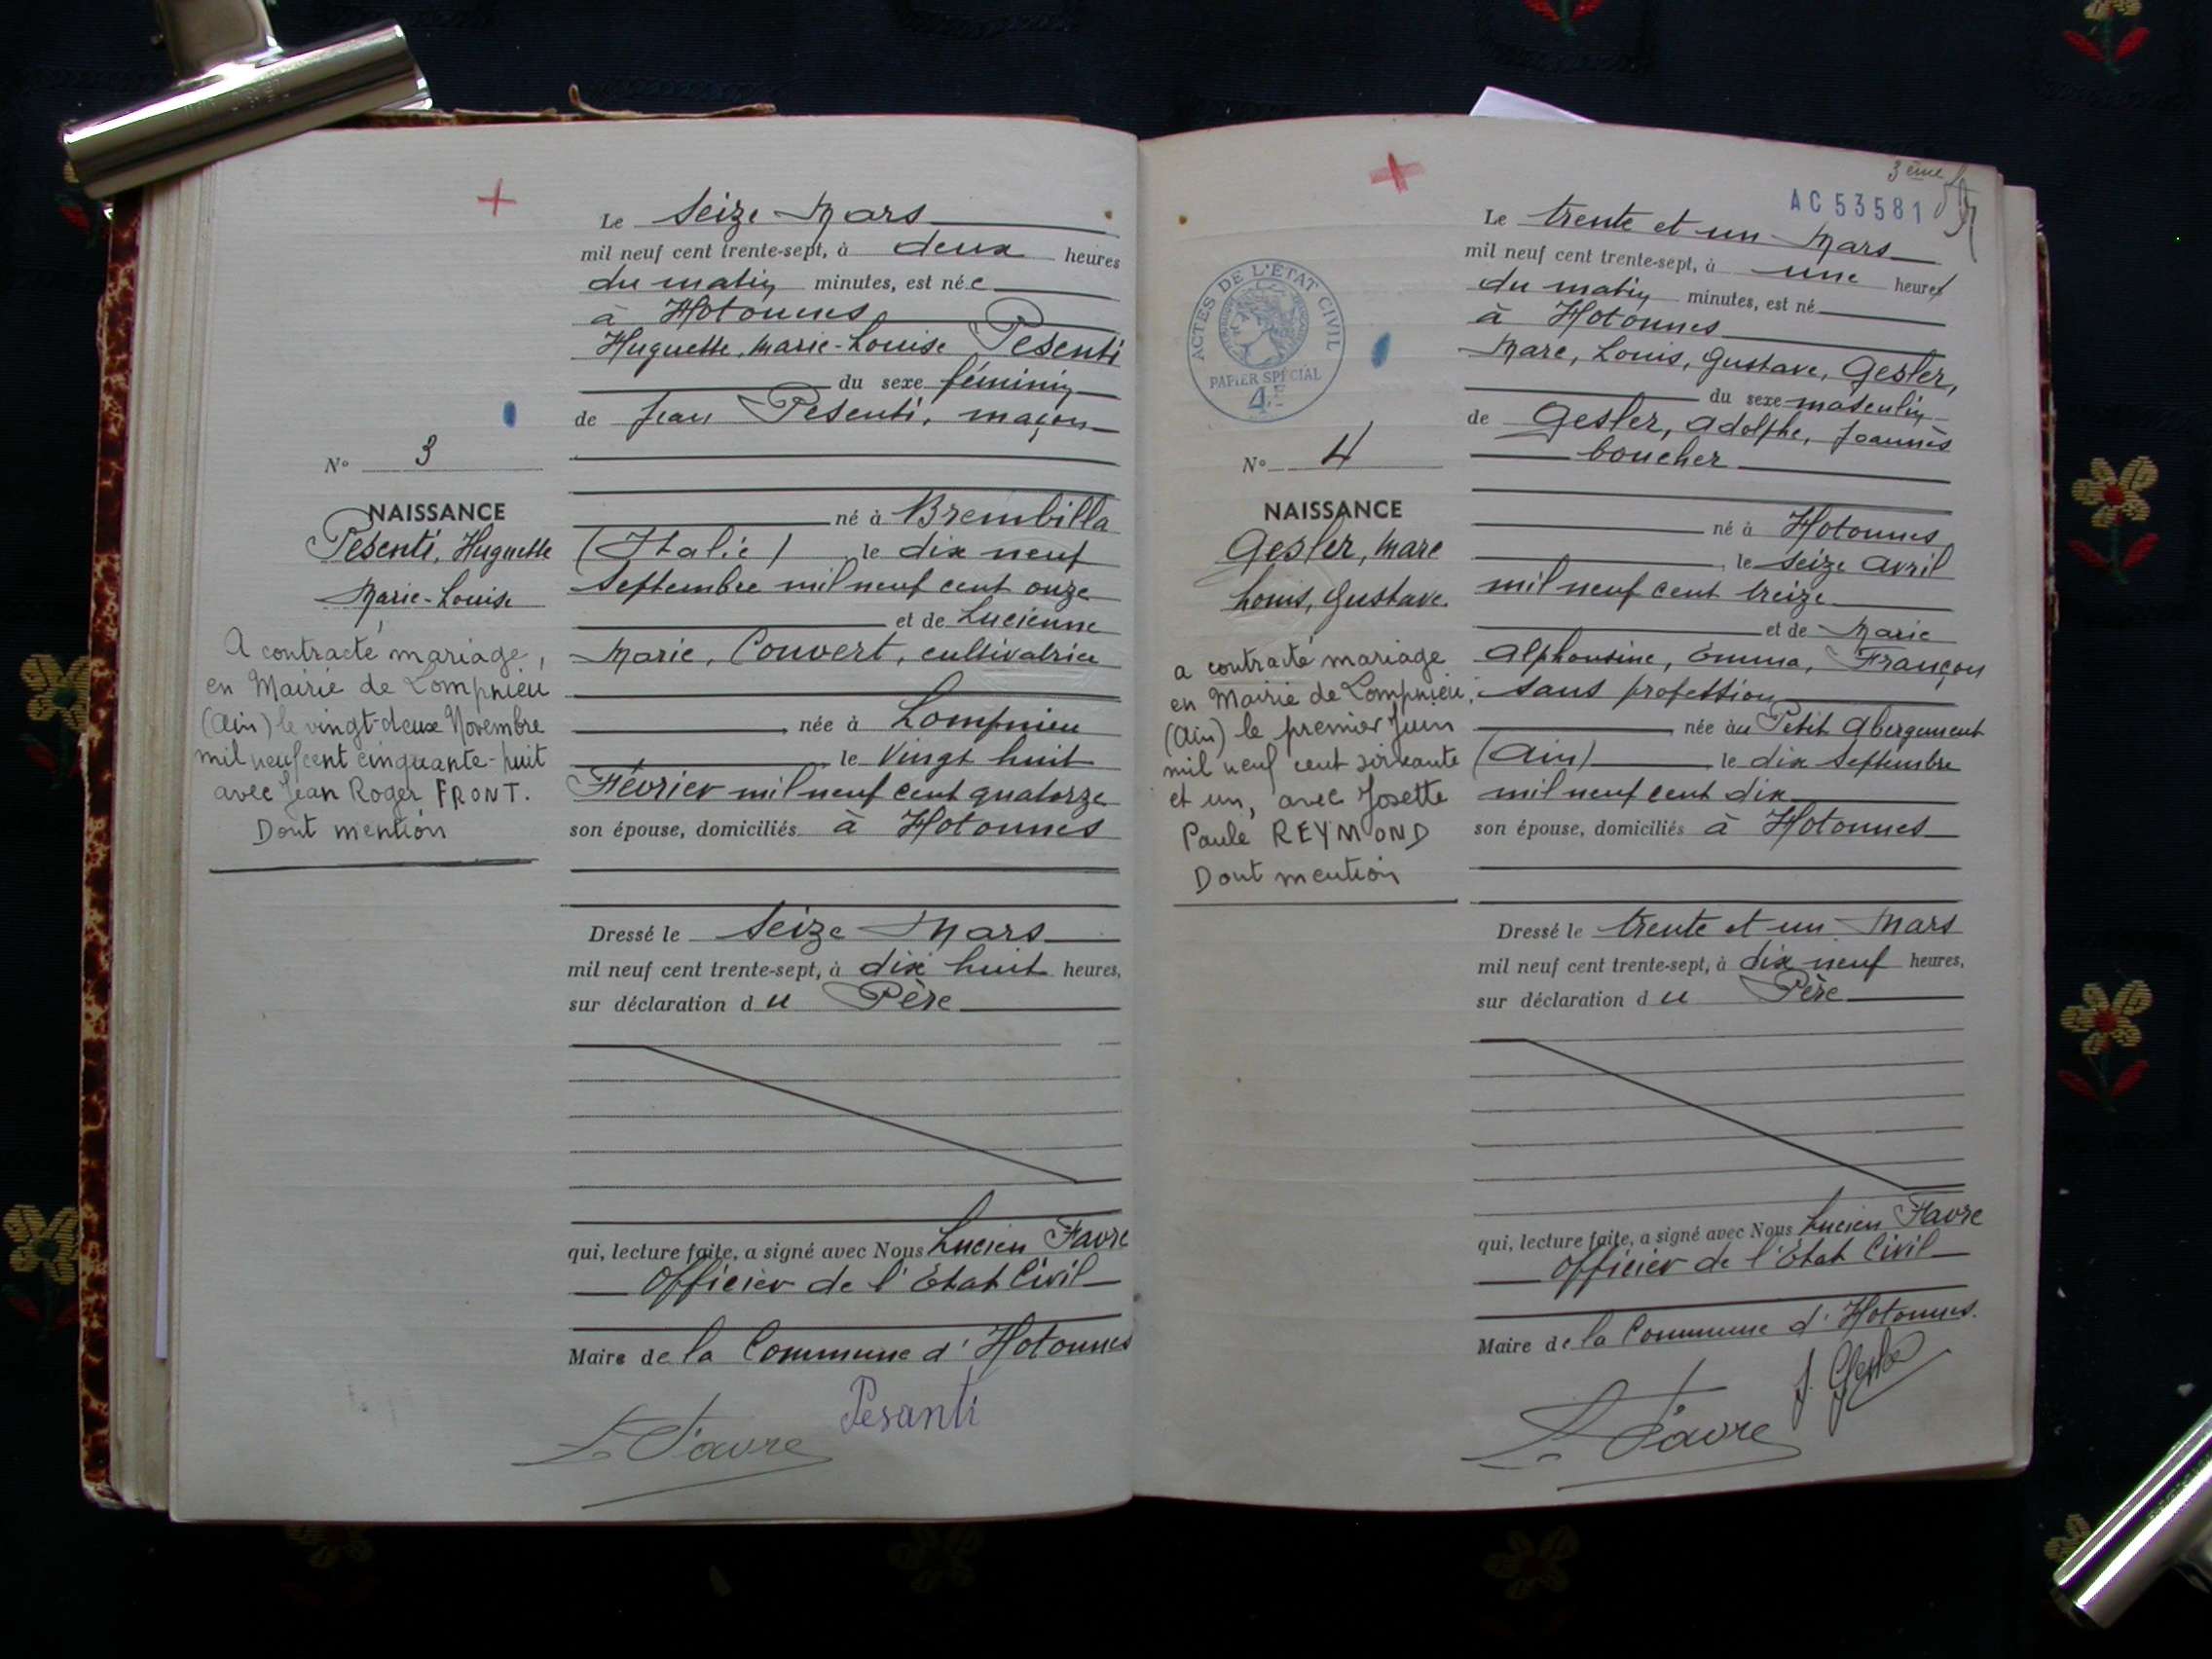 Le Seize Mars
mil neuf cent trente-sept, à deux heures
du matin minutes, est née
à Hotonnes
Huguette, Marie-Louise Pesenti
du sexe féminin
de Jean Pesenti, maçon
N° 3
NAISSANCE
Pesenti, Huguette
Marie-Louise
né à Brembilla
(Italie) le dix neuf
Septembre mil neuf cent onze
et de Lucienne
Marie, Convert, cultivatrice
née à Lompnieu
le Vingt huit
Février mil neuf cent quatorze
son épouse, domiciliés à Hotonnes
A contracté mariage,
en Mairie de Lompnieu
(Ain) le vingt-deux Novembre
mil neuf cent cinquante-huit
avec Jean Roger FRONT.
Dont mention
Dressé le Seize Mars
mil neuf cent trente-sept, à dix huit heures,
sur déclaration du Père
qui, lecture faite, a signé avec Nous Lucien Favre
Officier de l'Etat Civil
Maire de la Commune d'Hotonnes
L Favre
Pesanti
3ème
AC 53581
Le trente et un Mars
mil neuf cent trente-sept, à une heure
du matin minutes, est né
à Hotonnes
Marc, Louis, Gustave, Gesler,
du sexe masculin
de Gesler, Adolphe, Joannès
boucher
ACTES DE L'ÉTAT CIVIL
PAPIER SPÉCIAL
4F
N° 4
NAISSANCE
Gesler, Marc
Louis, Gustave.
né à Hotonnes
, le seize Avril
mil neuf cent treize
et de Marie
Alphonsine, Emma, Françon
sans profession
née au Petit Abergement
(Ain) le dix Septembre
mil neuf cent dix
son épouse, domiciliés à Hotonnes
a contracté mariage
en Mairie de Lompnieu,
(Ain) le premier Juin
mil neuf cent soixante
et un, avec Josette
Paule REYMOND
Dont mention
Dressé le trente et un Mars
mil neuf cent trente-sept, à dix neuf heures,
sur déclaration du Père
qui, lecture faite, a signé avec Nous Lucien Favre
Officier de l'Etat Civil
Maire de la Commune d'Hotonnes.
L Favre
J. Gesler